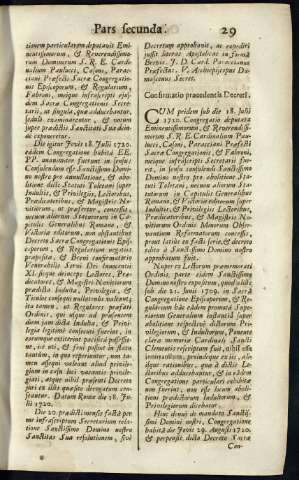 Pars secunda.
29
tionem particularem deputavit Emi-
nentissimorum, & Reverendissimo-
rum Dominorum S. R. E. Cardi-
nalium Paulucci, Casoni, Parac-
ciani Præfecti Sacræ Congregatio-
nis Episcoporum, & Regularium,
Fabroni, meique infrascripti ejus-
dem Sacræ Congregationis Secre-
tarii, ut singula, quæ adducebantur,
sedulo examinarent, & votum
super præmissis Sanctitati Suæ dein-
de exponeretur.
Die igitur Jovis 18. Julii 1720.
eadem Congregatione habita EE.
PP. unanimes fuerunt in sensu:
Consulendum esse Sanctissimo Domi-
no nostro pro annullatione, & abo-
litione dicti Statuti Toletani super
Indultis, & Privilegiis, Lectoribus,
Prædicatoribus, & Magistris No-
vitiorum, ut præfertur, concessis,
necnon aliorum Statutorum in Ca-
pitulis Generalibus Romano, &
Victoriæ relatorum, non obstantibus
Decreto Sacræ Congregationis Epis-
coporum, & Regularium negotiis
præposita, & Brevi confirmatorio
Venerabilis Servi Dei Innocentii
XI. sicque deinceps Lectores, Præ-
dicatores, & Magistri Novitiorum
prædictis Indultis, Privilegiis, &
Titulis concessis nullatenus valeant;
ita tamen, ut Regulares præfati
Ordinis, qui usque ad præsentem
diem jam dictis Indultis, & Privi-
legiis legitimè potiti fuerint, in
eorumque existerent pacificâ possessio-
ne, in eis, & sub possint in statu
tantum, in quo reperiuntur, non ta-
men aliquo valeant aliud privile-
gium in casu dici vacantis privile-
giati, atque nihil præsenti Decreto
juri ex illis quæsito derogatum cen-
seatur. Datum Romæ die 18. Ju-
lii 1720.
Die 20. prædicti mensis facta per
me infrascriptum Secretarium rela-
tione Sanctissimo Domino nostro
Sanctitas Sua resolutionem, sive
Decretum approbavit, ac expediri
jussit Litteras Apostolicas in formâ
Brevis. J. D. Card. Paraccianus
Præfectus. V. Archiepiscopus Da-
mascenus Secret.
Confirmatio præcedentis Decreti.
CUM pridem sub die 18. Julii
1720. Congregatio deputata
Eminentissimorum, & Reverendissi-
morum S. R. E. Cardinalium Pau-
lucci, Casoni, Paracciani Præfecti
Sacræ Congregationis, & Fabroni,
meique infrascripti Secretarii fue-
rit, in sensu consulendi Sanctissimo
Domino nostro pro abolitione Sta-
tuti Toletani, necnon aliorum Sta-
tutorum in Capitulis Generalibus
Romano, & Victoriæ relatorum super
Indultis, Privilegiis Lectoribus,
Prædicatoribus, & Magistris No-
vitiorum Ordinis Minorum Obser-
vantium Reformatorum concessis,
prout latius ex facti serie, & decreto
edito à Sanctissimo Domino nostro
approbatum fuit.
Nuper ex Lectorum præmemorati
Ordinis parte etiam Sanctissimo
Domino nostro expositum, quod aliàs
sub die 21. Junii 1709. in Sacra
Congregatione Episcoporum, & Re-
gularium hâc eâdem promota suppli-
catione quorumdam instantiâ super
abolitione respectivè dictorum Pri-
vilegiorum, & Indultorum, Fautore
claræ memoriæ Cardinali Sancti
Clementis rescriptum fuit, nihil esse
innovandum, proindeque ex iis, ali-
isque rationibus, quæ à dictis Le-
ctoribus adducebantur, & in eadem
Congregatione particulari exhibitæ
non fuerint, non esse locum aboli-
tioni prædictorum Indultorum, &
Privilegiorum dicebant.
Hinc denuò de mandato Sanctis-
simi Domini nostri, Congregatione
habitâ die Jovis 29. Augusti 1720.
& perpensis dicto Decreto Sacræ
Con-